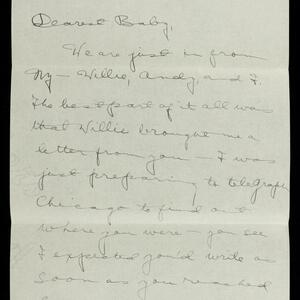 Dearest Baby,
We are just in from
Ny — Willie, Andy, and I.
The best part of it all was
that Willie brought me a
letter from you — I was
just preparing to telegraph
Chicago to find out
where you were — you see
I expected you'd write as
soon as you reached